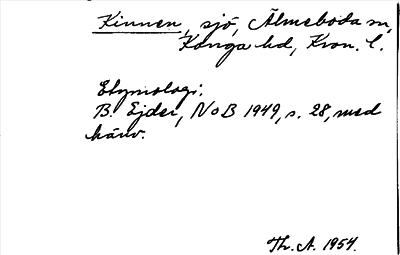 Kinnen, sjö, Älmeboda sn,
Konga hd, Kron. l.
Etymologi:
B. Ejder, NoB 1949, s. 28, med
hänv.
Th. A. 1954.